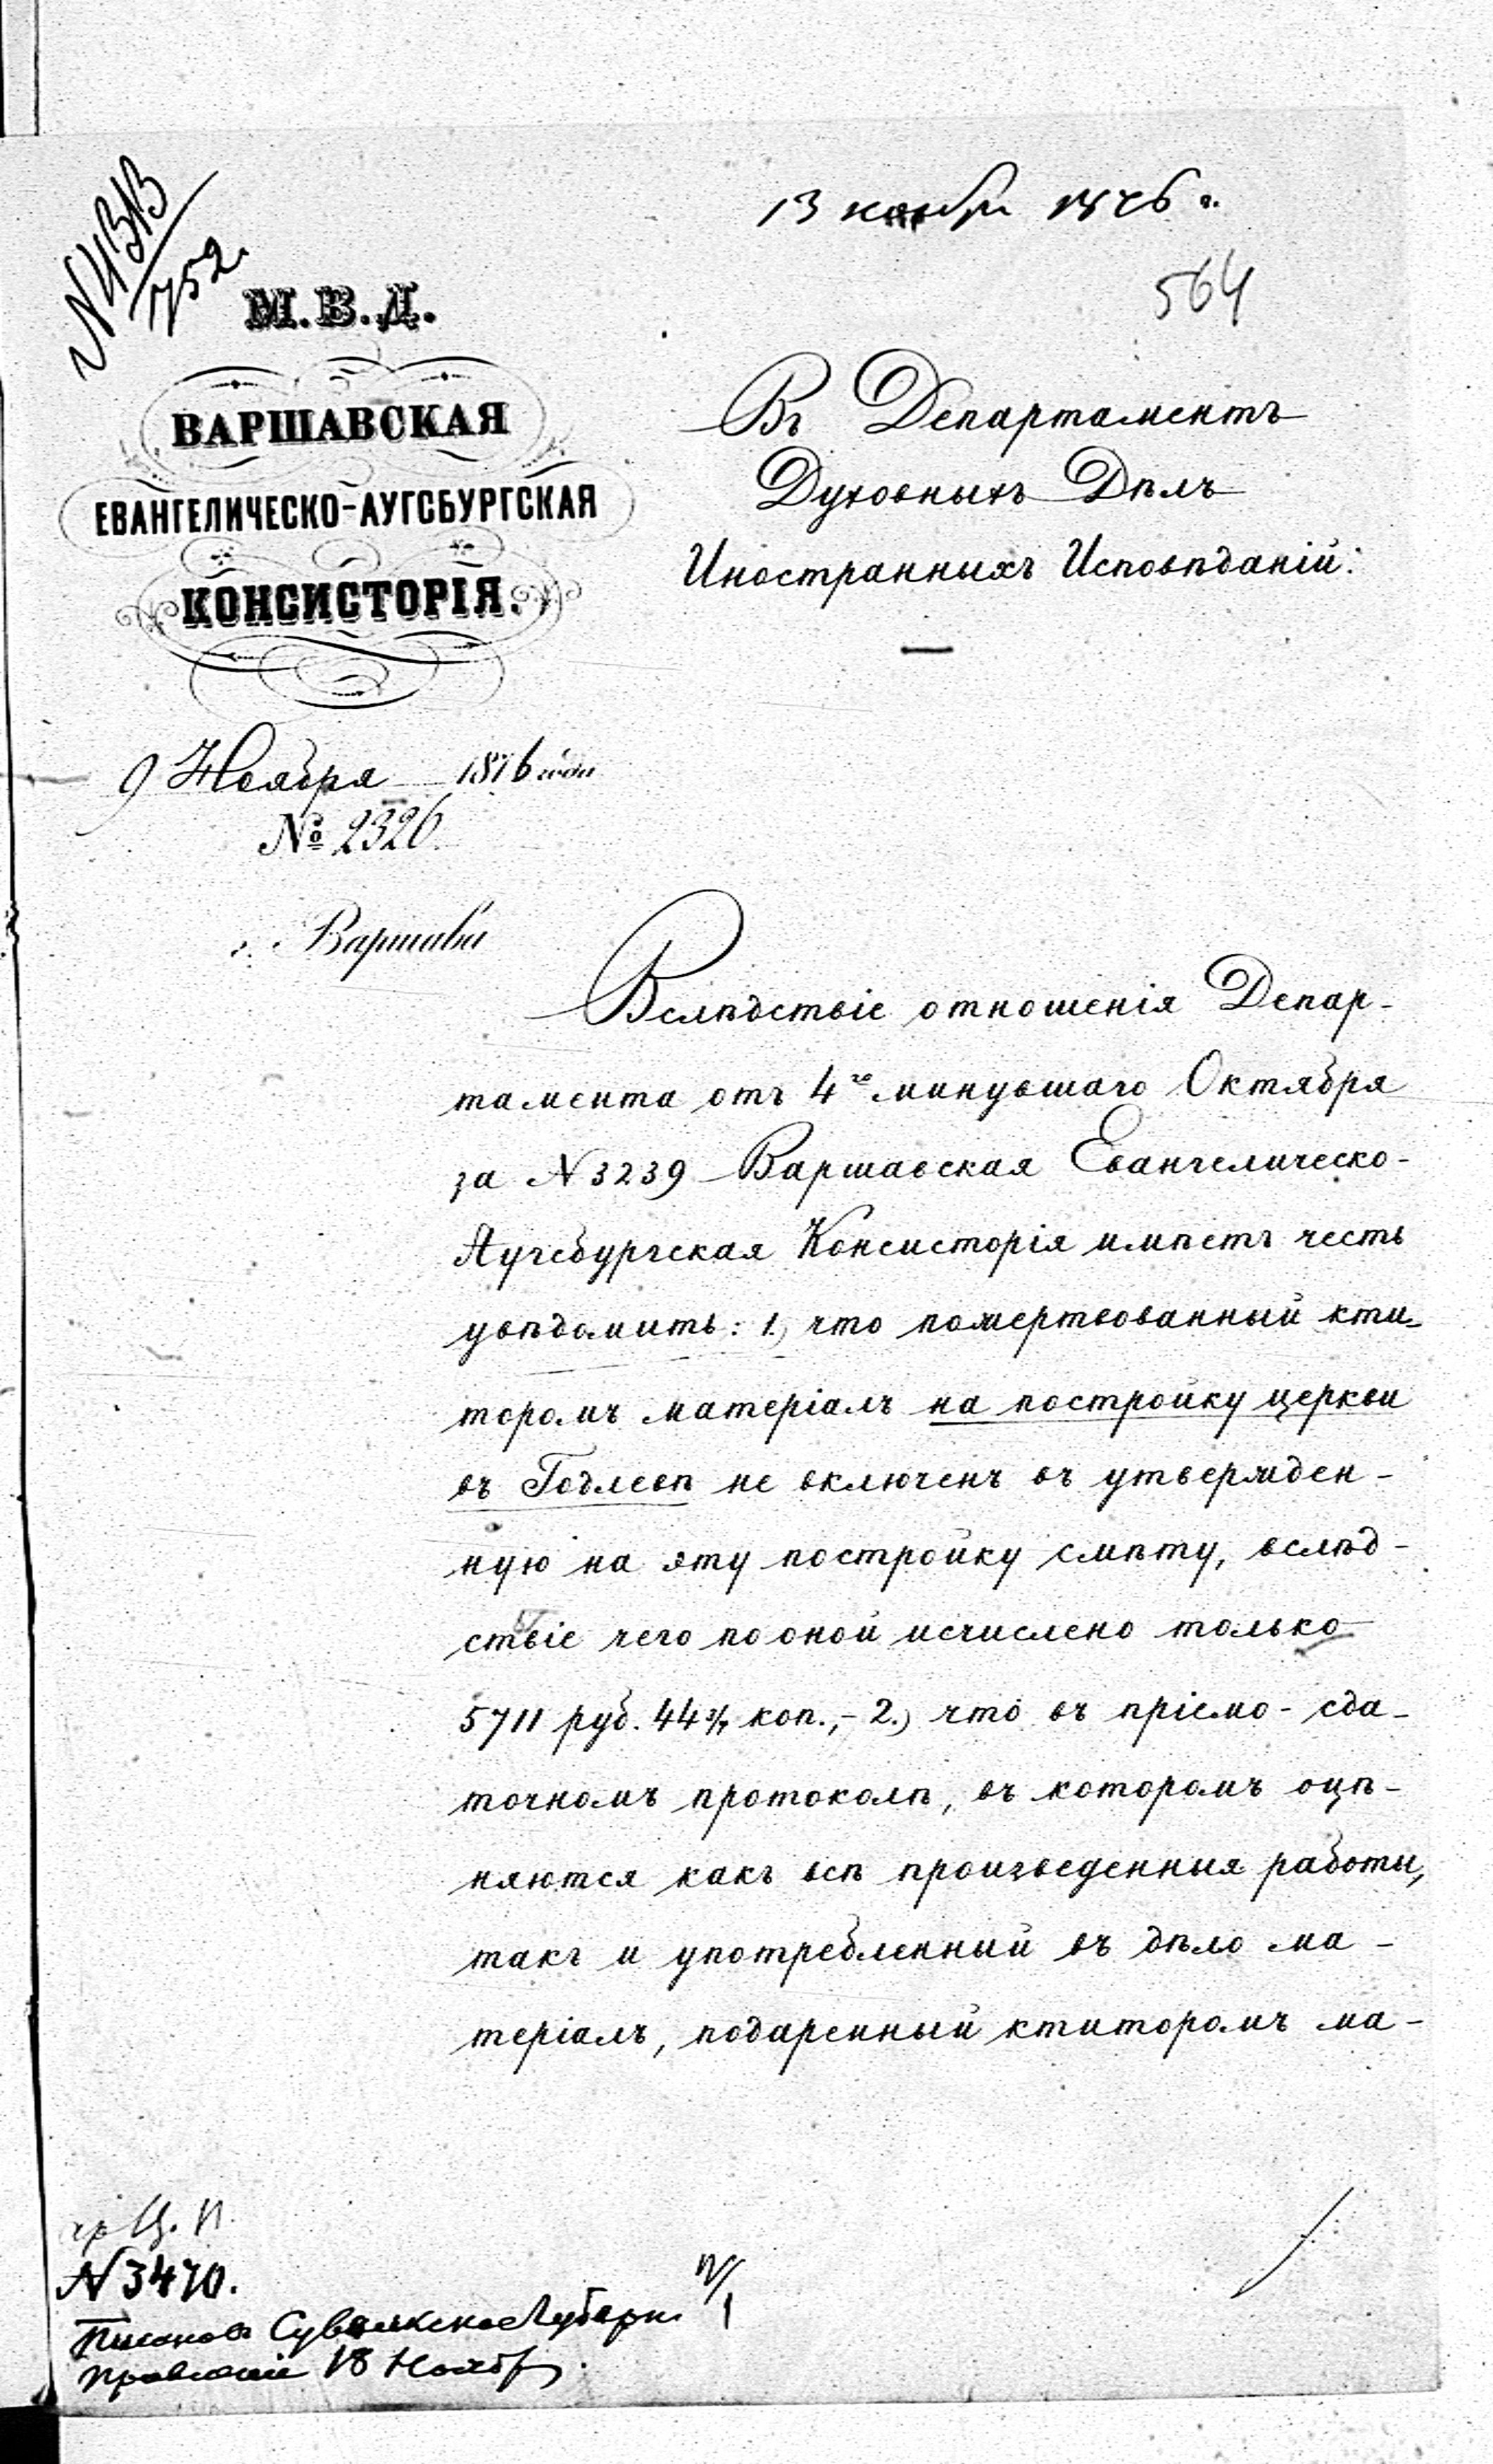 N 4313/752.
13 ноября 1876 г.
564
М.В.Д.
ВАРШАВСКАЯ
ЕВАНГЕЛИЧЕСКО-АУГСБУРГСКАЯ
КОНСИСТОРІЯ.
9 Ноября 1876 года
№ 2326.
г. Варшава
Въ Департаментъ
Духовныхъ Дѣлъ
Иностранныхъ Исповѣданій.
Вслѣдствіе отношенія Депар-
тамента отъ 4го минувшаго Октября
за N 3239 Варшавская Евангелическо-
Аугсбургская Консисторія имѣетъ честь
увѣдомить: 1.) что пожертвованный кти-
торомъ матеріалъ на постройку церкви
въ Годлевѣ не включенъ въ утвержден-
ную на эту постройку смѣту, вслѣд-
ствіе чего по оной исчислено только
5711 руб. 44 коп., - 2.) что въ пріемо-сда-
точномъ протоколѣ, въ которомъ оцѣ-
няются какъ всѣ произведенныя работы,
такъ и употребленный въ дѣло ма-
теріалъ, подаренный ктиторомъ ма-
N 3470.
Писано въ Сувалкское Губерн.
Правленіе 18 Ноября.